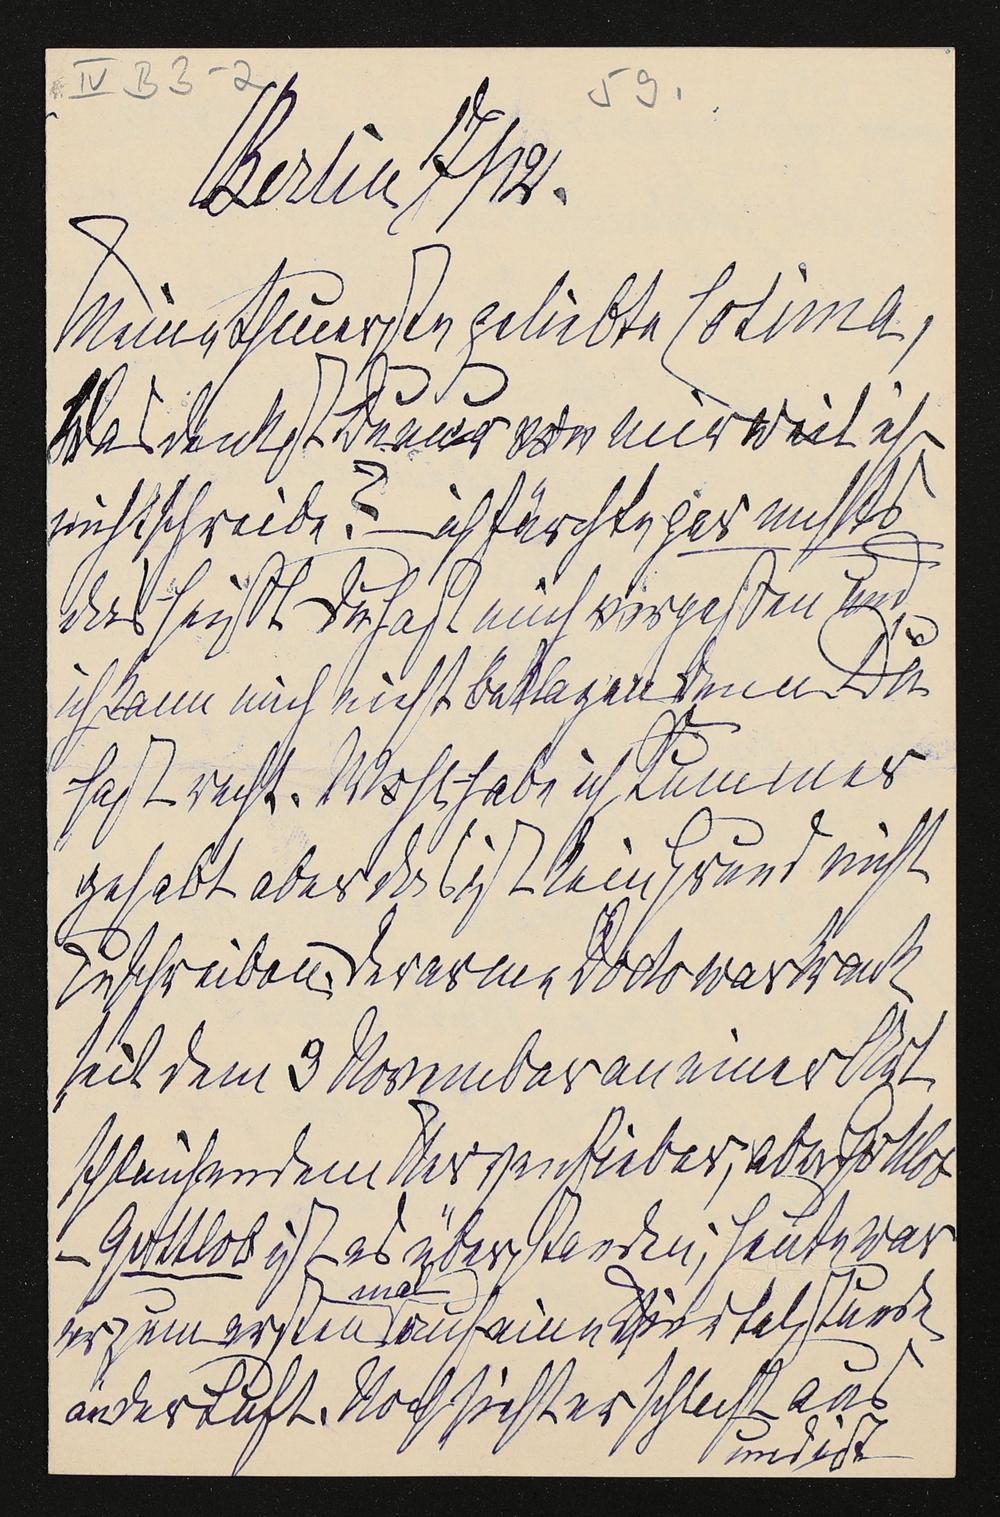 IV B 3-2
59.
Berlin 17/12.
Meine theuerste geliebte Cosima,
Was denkst Du nur von mir weil ich
nicht schreibe? – ich fürchte gar nichts
das heißt Du hast mich vergessen und
ich kann mich nicht beklagen denn Du
hast recht. Wohl habe ich Kummer
gehabt aber das ist kein Grund nicht
zu schreiben. Der arme Dodo war krank
seit dem 3 November an einer Art
schleichendem Nervenfieber, aber Gottlob
– Gottlob ist es überstanden; heute war
er zum ersten mal auf eine Viertelstunde
an der Luft. Noch sieht er schlecht aus
und ist